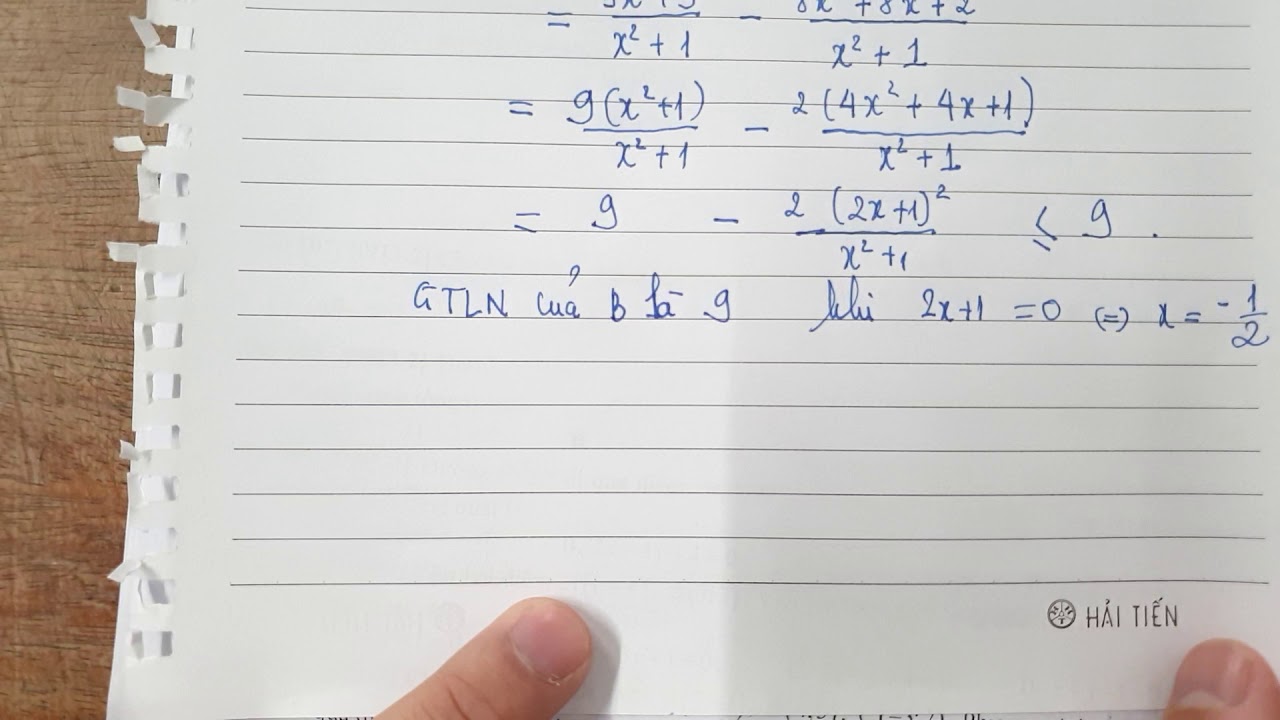 = 9x² + 9 / x² + 1 − 8x² + 8x + 2 / x² + 1
= 9(x²+1) / x² + 1 − 2(4x² + 4x + 1) / x² + 1
= 9 − 2 (2x+1)² / x² + 1 ≤ 9.
GTLN của B là 9 khi 2x+1 = 0 (=) x = -1/2
HẢI TIẾN